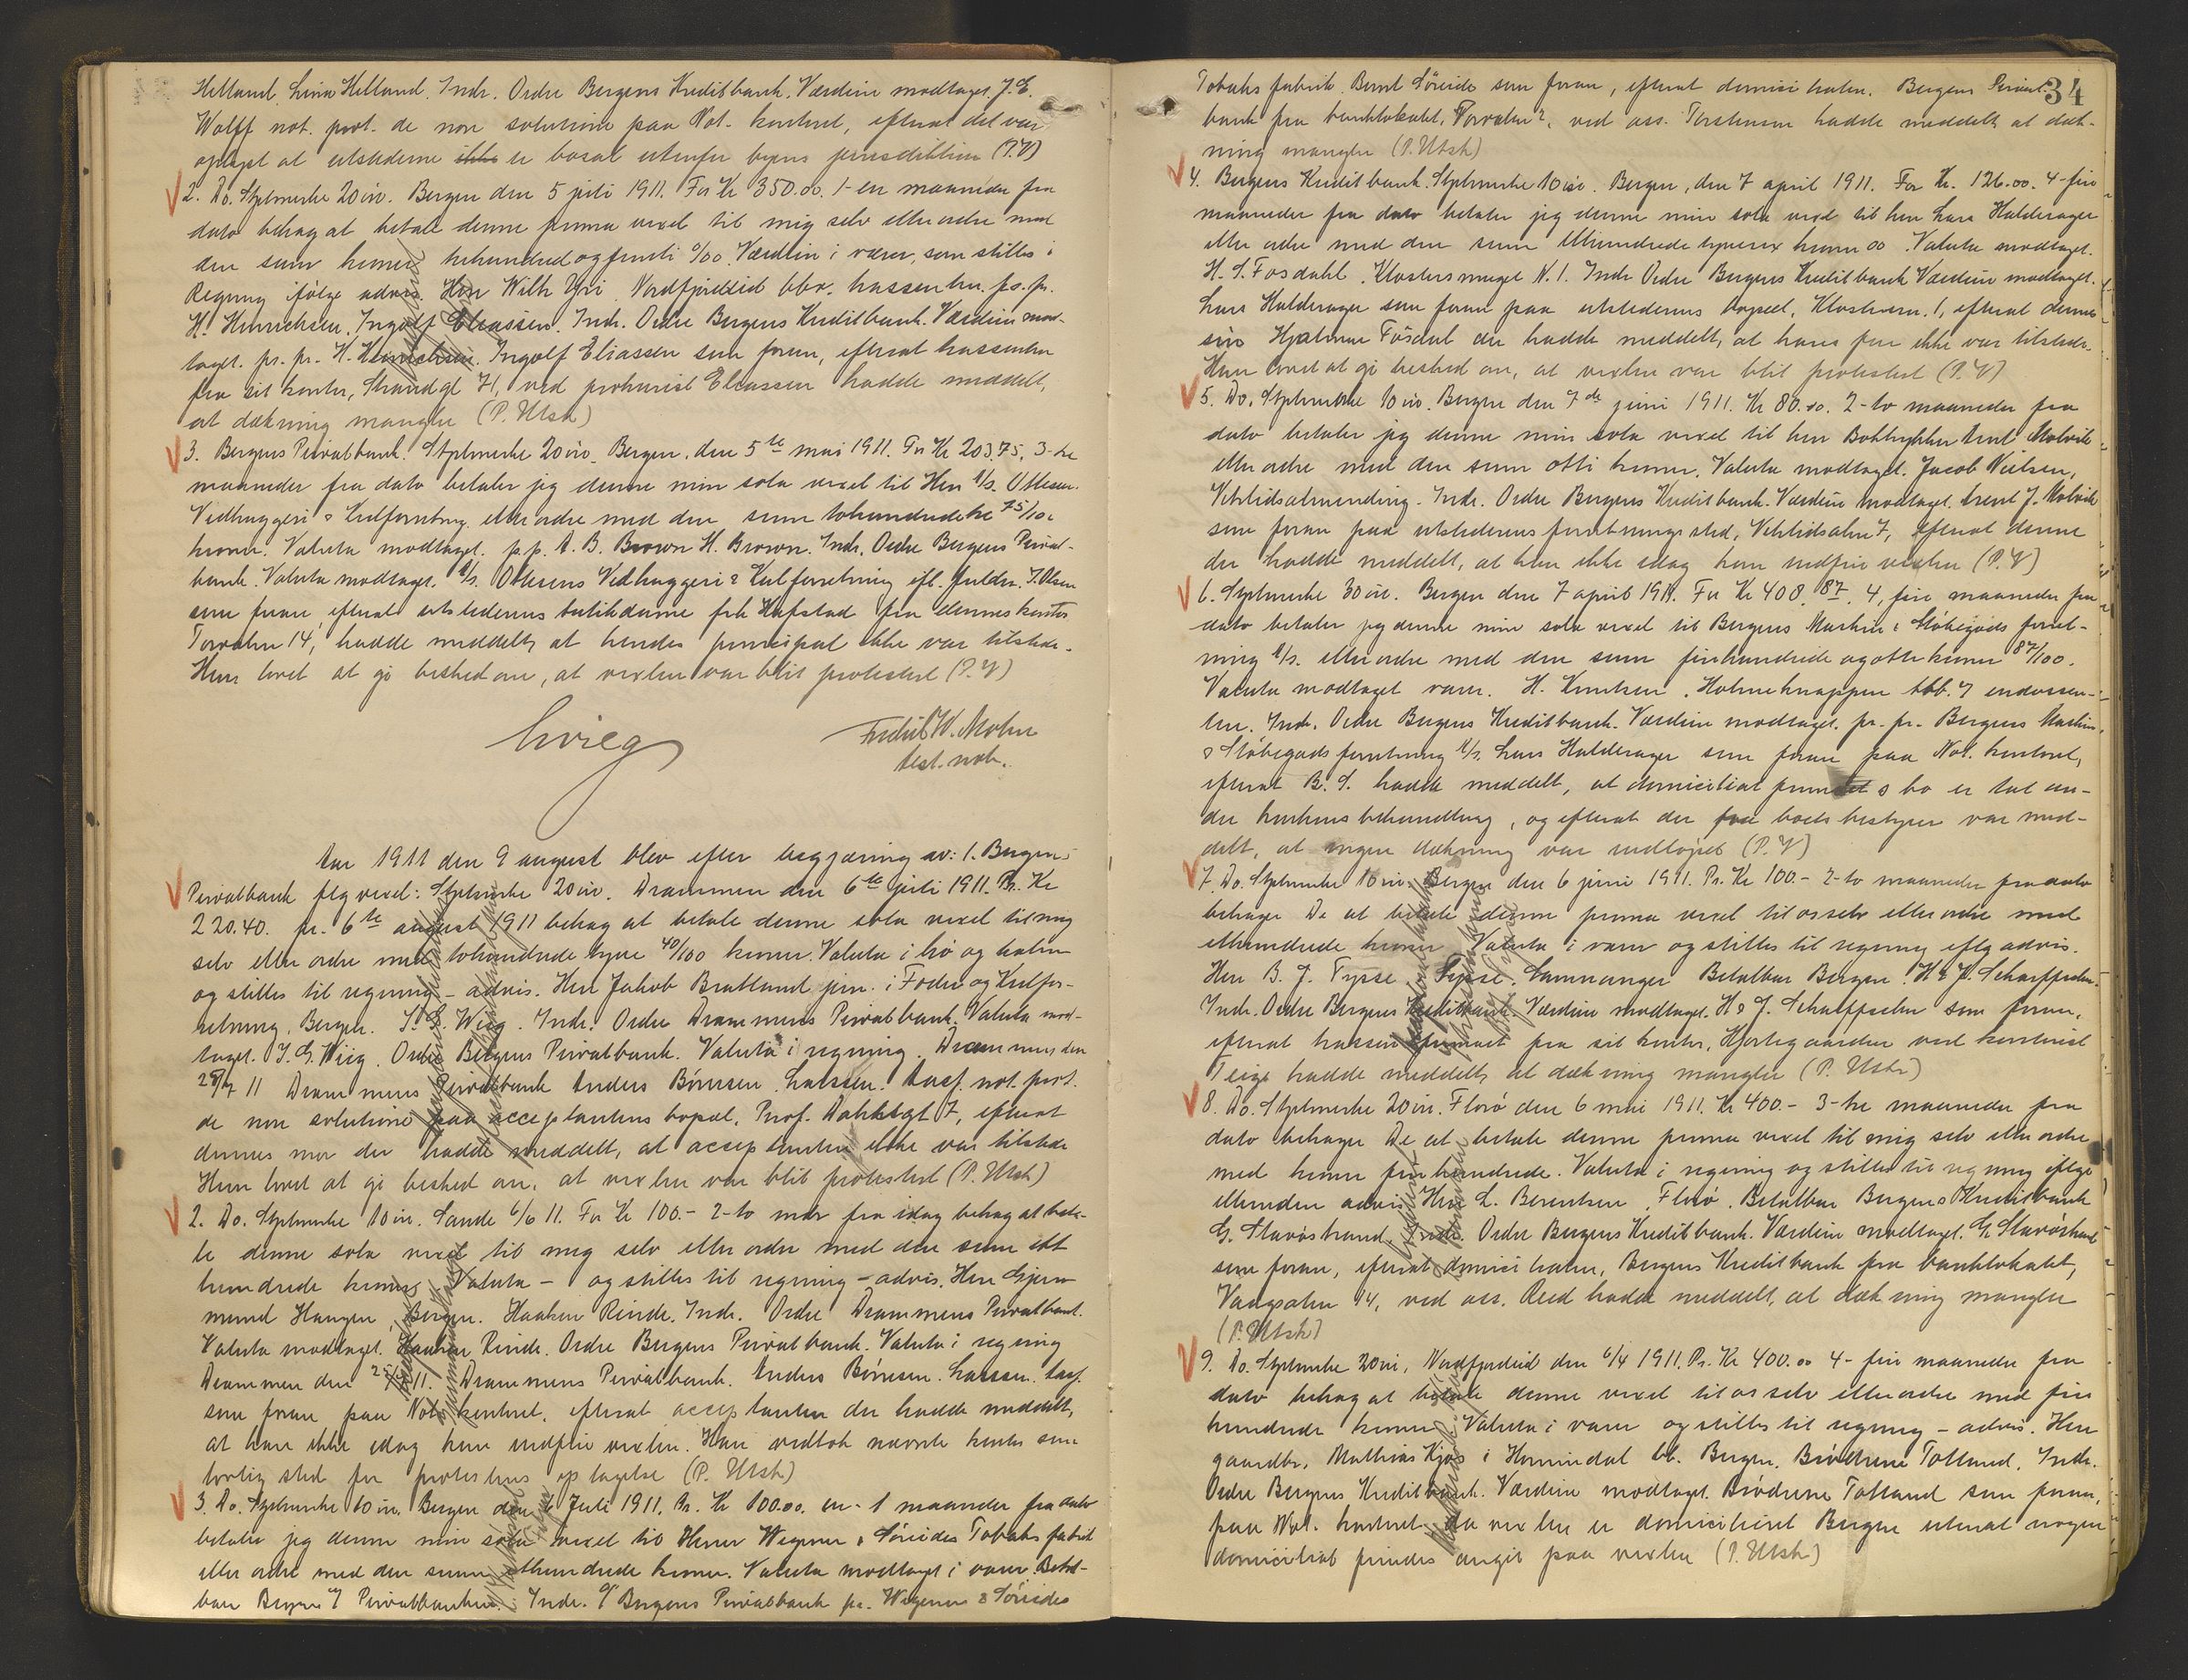 Helland, Lina Helland. Indr. Ordre Bergens Kreditbank. Værdien modtaget. J. E.
Wolff not. prot. de non solutione paa Not. kontoret, efterat det var
oplyst at utstederne ikke er bosat utenfor byens jurisdiktion (P.V)
2. Do. Stplmerke 20 øre. Bergen den 5 juli 1911. For Kr 350.00. 1-en maaneder fra
dato behag at betale denne prima vexel til mig selv eller ordre med
den sum kroner trehundredogfemti 0/00. Værdien i varer, som stilles i
Regning ifølge advis. Herr Wilh Yri Nordfjordeid bbr. hassenten. pr. pr.
H. Hinrichsen. Ingolf Eliassen. Indr. Ordre Bergens Kreditbank. Værdien mod-
taget. pr. pr. H. Hinrichsen. Ingolf Eliassen som foran, efterat trassenten
fra sit kontor, Strandgt 71, ved prokurist Eliassen hadde meddelt,
at dækning mangler (P. Utsh)
3. Bergens Privatbank. Stplmerke 20 øre. Bergen, den 5te mai 1911. For Kr 203.75. 3-tre
maaneder fra dato betaler jeg denne min sola vexel til Herr A/S. Ottesen.
Vedhuggeri & Kulforretning eller ordre med den sum tohundredetre 75/100
kroner. Valuta modtaget. p.p. A. B. Brown H. Brown. Indr. Ordre Bergens Privat-
bank. Valuta modtaget. A/S. Ottesens Vedhuggeri & Kulforretning ifl. fuldm. J. Olsen
som foran, efterat utstederens butikdame frk Hafstad fra dennes kontor
Torvalm 14, hadde meddelt, at hendes principal ikke var tilstede.
Hun lovet at gi besked om, at vexlen var blit protestert (P.V)
Grieg
Fredrik W. Mohn
test. nob.
Aar 1911 den 9 august blev efter begjæring av: 1. Bergens
Privatbank flg vexel: Stplmerke 20 øre. Drammen den 6te juli 1911. Pr. Kr
220.40. pr. 6te august 1911 behag at betale denne sola vexel til mig
selv eller ordre med tohundrede tyve 40/100 kroner. Valuta i hø og halm
og stilles til regning - advis. Herr Jakob Bratland jun. i Foder og Kulfor-
retning, Bergen. J. G. Wiig. Indr. Ordre Drammens Privatbank. Valuta mod-
taget. J. G. Wiig. Ordre Bergens Privatbank. Valuta i regning. Drammen den
25/7 11 Drammens Privatbank Anders Børresen. Larssen. Aasf. not. prot.
de non solutione paa acceptantens bopæl, Prof. Dahlsgt 7, efterat
dennes mor der hadde meddelt, at acceptanten ikke var tilstede
Hun lovet at gi besked om, at vexlen var blit protestert (P. Utsh)
2. Do. Stplmerke 10 øre. Sande 6/6 11. For Kr 100.- 2-to mdr fra idag behag at beta-
le denne sola vexel til mig selv eller ordre med den sum ett
hundrede kroner Valuta - og stilles til regning - advis. Herr Gjer-
mund Haugen, Bergen. Haaken Rinde. Indr. Ordre Drammens Privatbank.
Valuta modtaget. Haaken Rinde. Ordre Bergens Privatbank. Valuta i regning
Drammen den 25/7 11. Drammens Privatbank. Anders Børresen. Larssen. Aasf.
som foran paa Nots kontoret, efterat acceptanten der hadde meddelt,
at han ikke idag kan indfri vexlen. Han vedtok nævnte kontor som
lovlig sted for protestens optagelse (P. Utsh)
3. Do. Stplmerke 10 øre. Bergen den 6 Juli 1911. Pr. Kr 100.00. en- 1 maaneder fra dato
betaler jeg denne min sola vexel til Herrer Wegener & Søreides Tobaks fabrik
eller ordre med den summa etthundrede kroner. Valuta modtaget i varer. Betal-
bar Bergen 7 Privatbanken. Indr. O/ Bergens Privatbank pr. Wegener & Søreides
34
Tobaks fabrik. Bernt Søreide som foran, efterat domiciliaten. Bergens Privat-
bank fra banklokalet, Torvalm 2, ved ass. Torstensen hadde meddelt, at dæk-
ning mangler (P. Utsh)
4. Bergens Kreditbank. Stplmerke 10 øre. Bergen, den 7 april 1911. For Kr. 126.00. 4-fire
maaneder fra dato betaler jeg denne min sola vexel til herr Lars Halderager
eller ordre med den sum Etthundrede tyvesex kroner 00. Valuta modtaget.
H. S. Fosdahl. Klostersmuget N. 1. Indr Ordre Bergens Kreditbank Værdien modtaget.
Lars Halderager som foran paa utstederens bopæl, Klostersm. 1, efterat dennes
søn Hjalmar Fosdal der hadde meddelt, at hans far ikke var tilstede.
Han lovet at gi besked om, at vexlen var blit protestert (P.V)
5. Do. Stplmerke 10 øre. Bergen den 7de juni 1911. Kr 80.00. 2-to maaneder fra
dato betaler jeg denne min sola vexel til herr Boktrykker Arnt Molvik
eller ordre med den sum otti kroner. Valuta modtaget. Jacob Nielsen,
Vetrlidsalmending. Indr. Ordre Bergens Kreditbank. Værdien modtaget. Arent J. Molvik
som foran paa utstederens forretningssted, Vetrlidsalm 7, efterat denne
der hadde meddelt, at han ikke idag kan indfri vexlen (P.V)
6. Stplmerke 30 øre. Bergen den 7 april 1911. For Kr 408.87. 4, fire maaneder fra
dato betaler jeg denne min sola vexel til Bergens Maskin & Støbegods forret-
ning A/S. eller ordre med den sum firehundrede og otte kroner 87/100.
Valuta modtaget varer. H. Knutsen, Holmeknappen bb. 7 endossen-
ten. Indr. Ordre Bergens Kreditbank. Værdien modtaget. pr. pr. Bergens Maskin
& Støbegods forretning A/S. Lars Halderager som foran paa Not. kontoret,
efterat B. S. hadde meddelt, at domiciliat firmaets bo er tat un-
der konkursbehandling, og efterat der fra boets bestyrer var med-
delt, at ingen dækning var indløpet (P.V)
7. Do. Stplmerke 10 øre. Bergen den 6 juni 1911. Pr. Kr 100.- 2-to maaneder fra dato
behager De at betale denne prima vexel til os selv eller ordre med
etthundrede kroner Valuta i varer og stilles til regning iflg advis.
Herr B. J. Tysse Tysse. Samnanger Betalbar Bergen. H & J. Scharffscher
Indr. Ordre Bergens Kreditbank. Værdien modtaget. H & J. Scharffscher som foran,
efterat trassentfirmaet fra sit kontor, Hjortegaarden ved kontorist
Teige hadde meddelt, at dækning mangler (P. Utsh)
8. Do. Stplmerke 20 øre. Florø den 6 mai 1911. Kr 400.- 3-tre maaneder fra
dato behager De at betale denne prima vexel til mig selv eller ordre
med kroner firehundrede. Valuta i regning og stilles til regning ifølge
eller uden advis Herr L. Berentsen, Florø. Betalbar Bergens Kreditbank
G. Stavøstrand. Indr. Ordre Bergens Kreditbank. Værdien modtaget. G. Stavøstrand
som foran, efterat domiciliaten, Bergens Kreditbank fra banklokalet,
Vaagsalm 14, ved ass. Reed hadde meddelt, at dækning mangler
(P. Utsh)
9. Do. Stplmerke 20 øre, Nordfjordeid den 6/4 1911. Pr. Kr 400.00 4- fire maaneder fra
dato behag at betale denne vexel til os selv eller ordre med fire
hundrede kroner Valuta i varer og stilles til regning - advis. Herr
gaardbr. Mathias Kjøs i Hornindal bb. Bergen. Brødrene Totland. Indr.
Ordre Bergens Kreditbank. Værdien modtaget. Brødrene Totland som foran,
paa Not. kontoret da vexlen er domicilieret Bergen uten at nogen
domiciliat findes angit paa vexlen (P. Utsh)